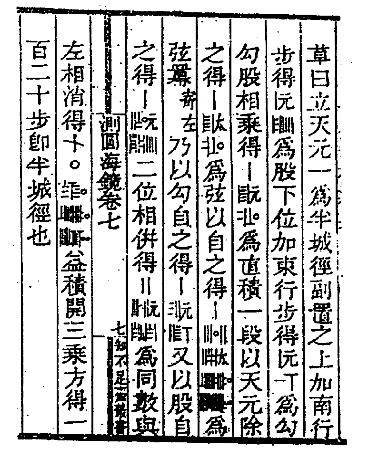 草曰立天元一爲半城徑副置之上加南行
步得元爲股下位加東行步得元爲勾
勾股相乘得丨元爲直積一段以天元除
之得丨太爲弦以自之得丨太爲
弦冪寄左乃以勾自之得丨元又以股自
之得丨元二位相併得〢元爲同數與
測圓海鏡卷七
七 知不足齋叢書
左相消得益積開三乘方得一
百二十步卽半城徑也